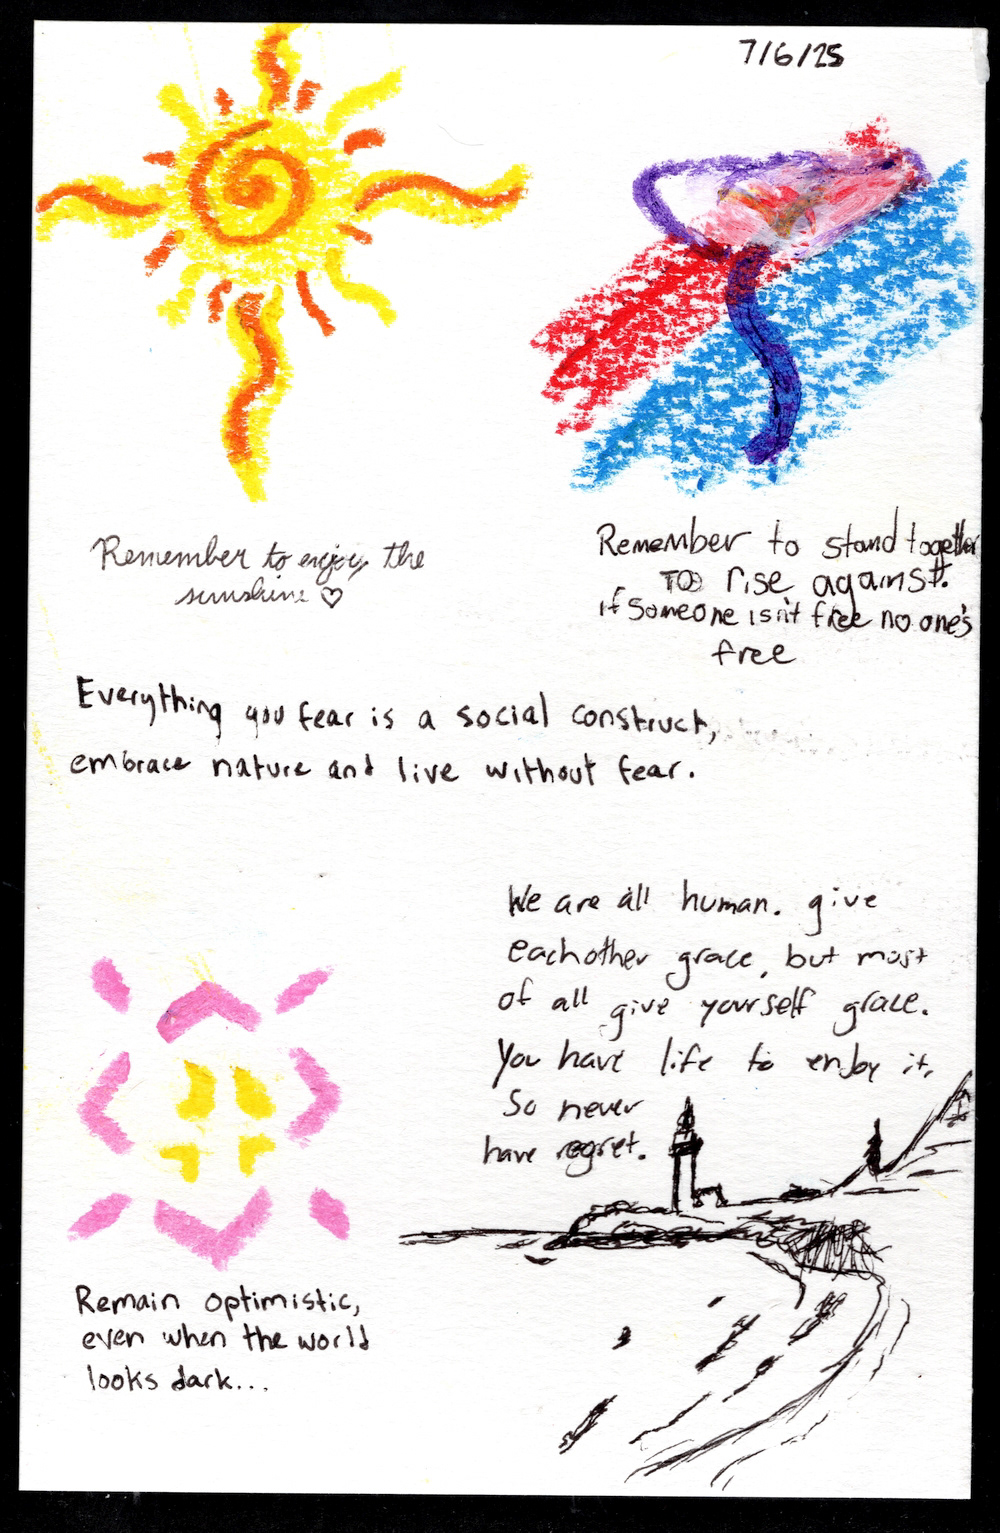 7/6/25
Remember to enjoy the
sunshine ♡
Remember to stand together
TO rise against.
if someone isn't free no one's
free
Everything you fear is a social construct,
embrace nature and live without fear.
We are all human. give
eachother grace, but most
of all give yourself grace.
You have life to enjoy it,
So never
have regret.
Remain optimistic,
even when the world
looks dark...